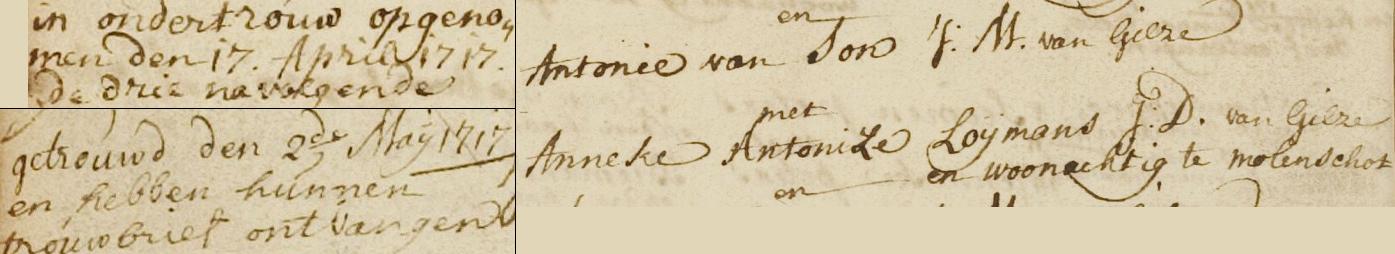 in ondertrouw opgeno„
men den 17. April 1717.
de drie navolgende
getrouwd den 2de May 1717
en hebben hunnen
trouwbrief ontvangen
en
Antonie van Son J: M. van Gilze
met
Anneke Antonize Loijmans J: D. van Gilze
en woonachtig te molenschot
en